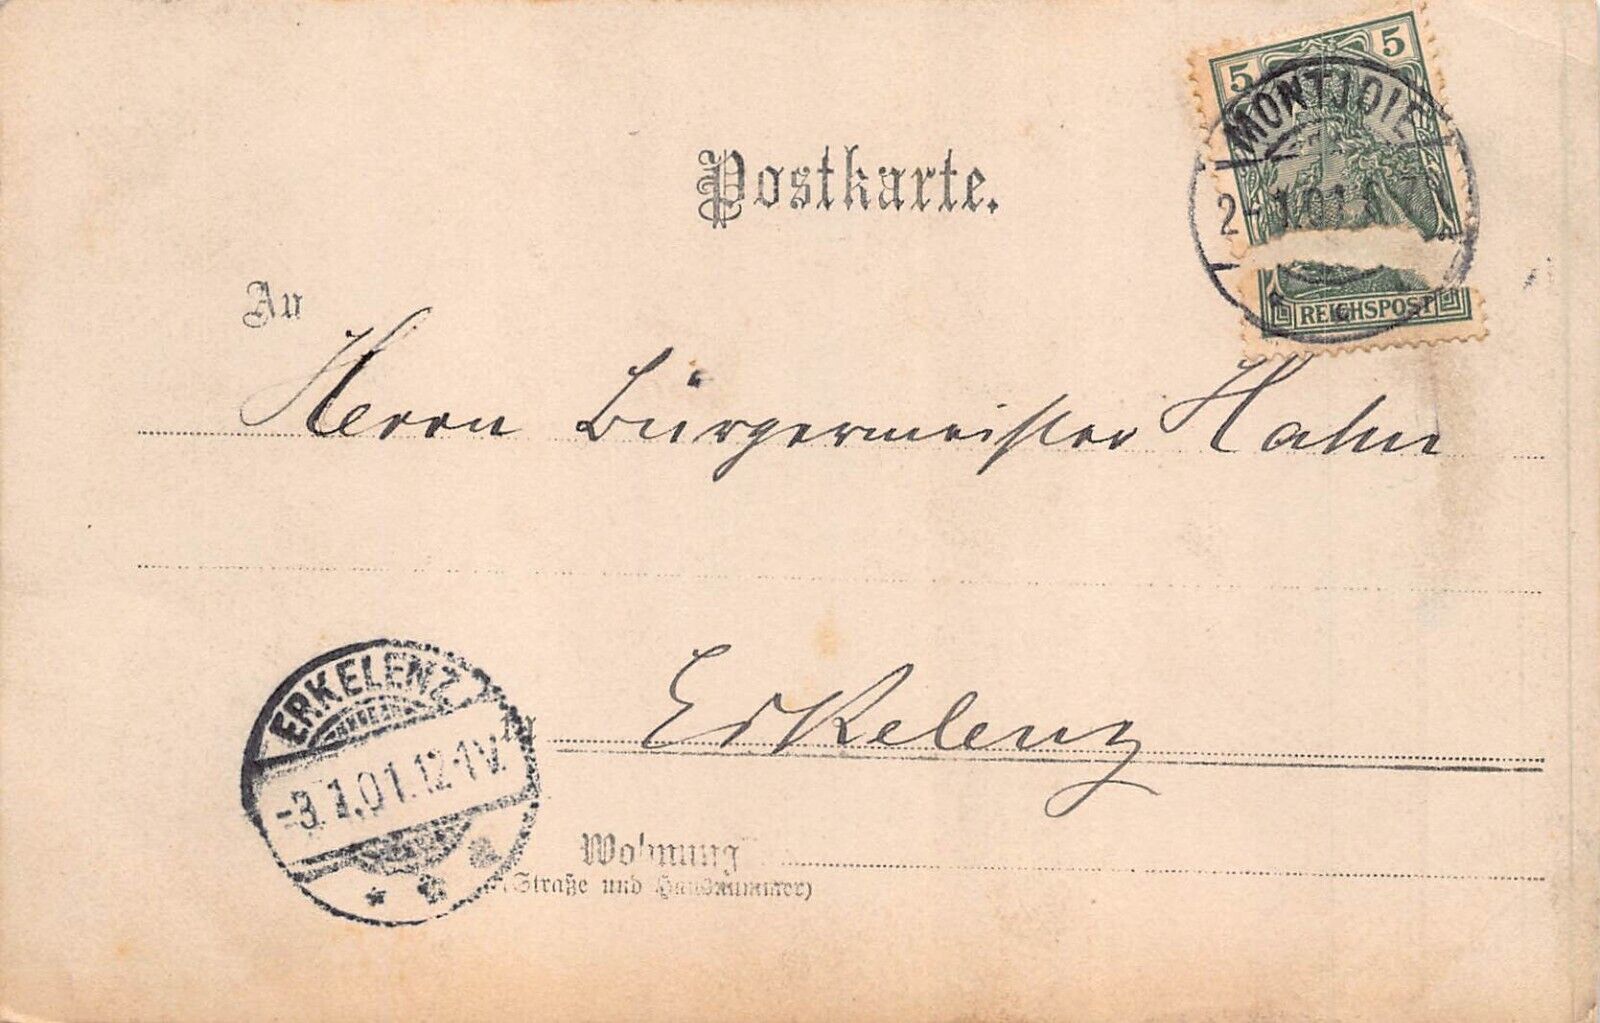 5 5
MONTJOIE
2-1.01.
REICHSPOST
Postkarte.
An
Herrn Bürgermeister Hahn
in Erkelenz
ERKELENZ
-3.1.01.12-1V.
a
Wohnung
(Straße und Hausnummer)